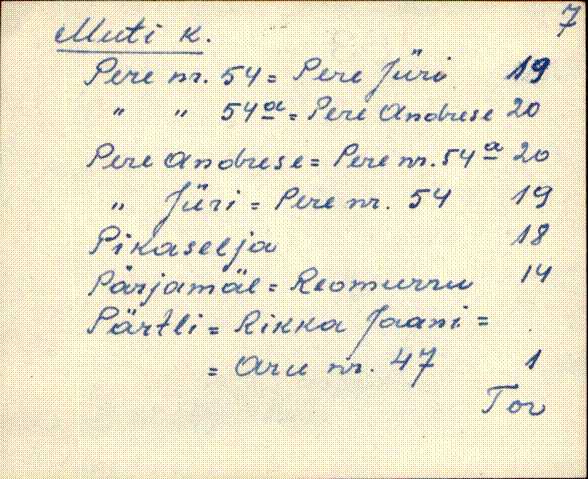 7
Muti k.
Pere nr. 54 = Pere Jüri 19
" " 54a = Pere Andrese 20
Pere Andrese = Pere nr. 54a 20
" Jüri = Pere nr. 54 19
Pikaselja 18
Pärjamäe = Reomurru 14
Pärtli = Rikka Jaani =
= Aru nr. 47 1
Tor